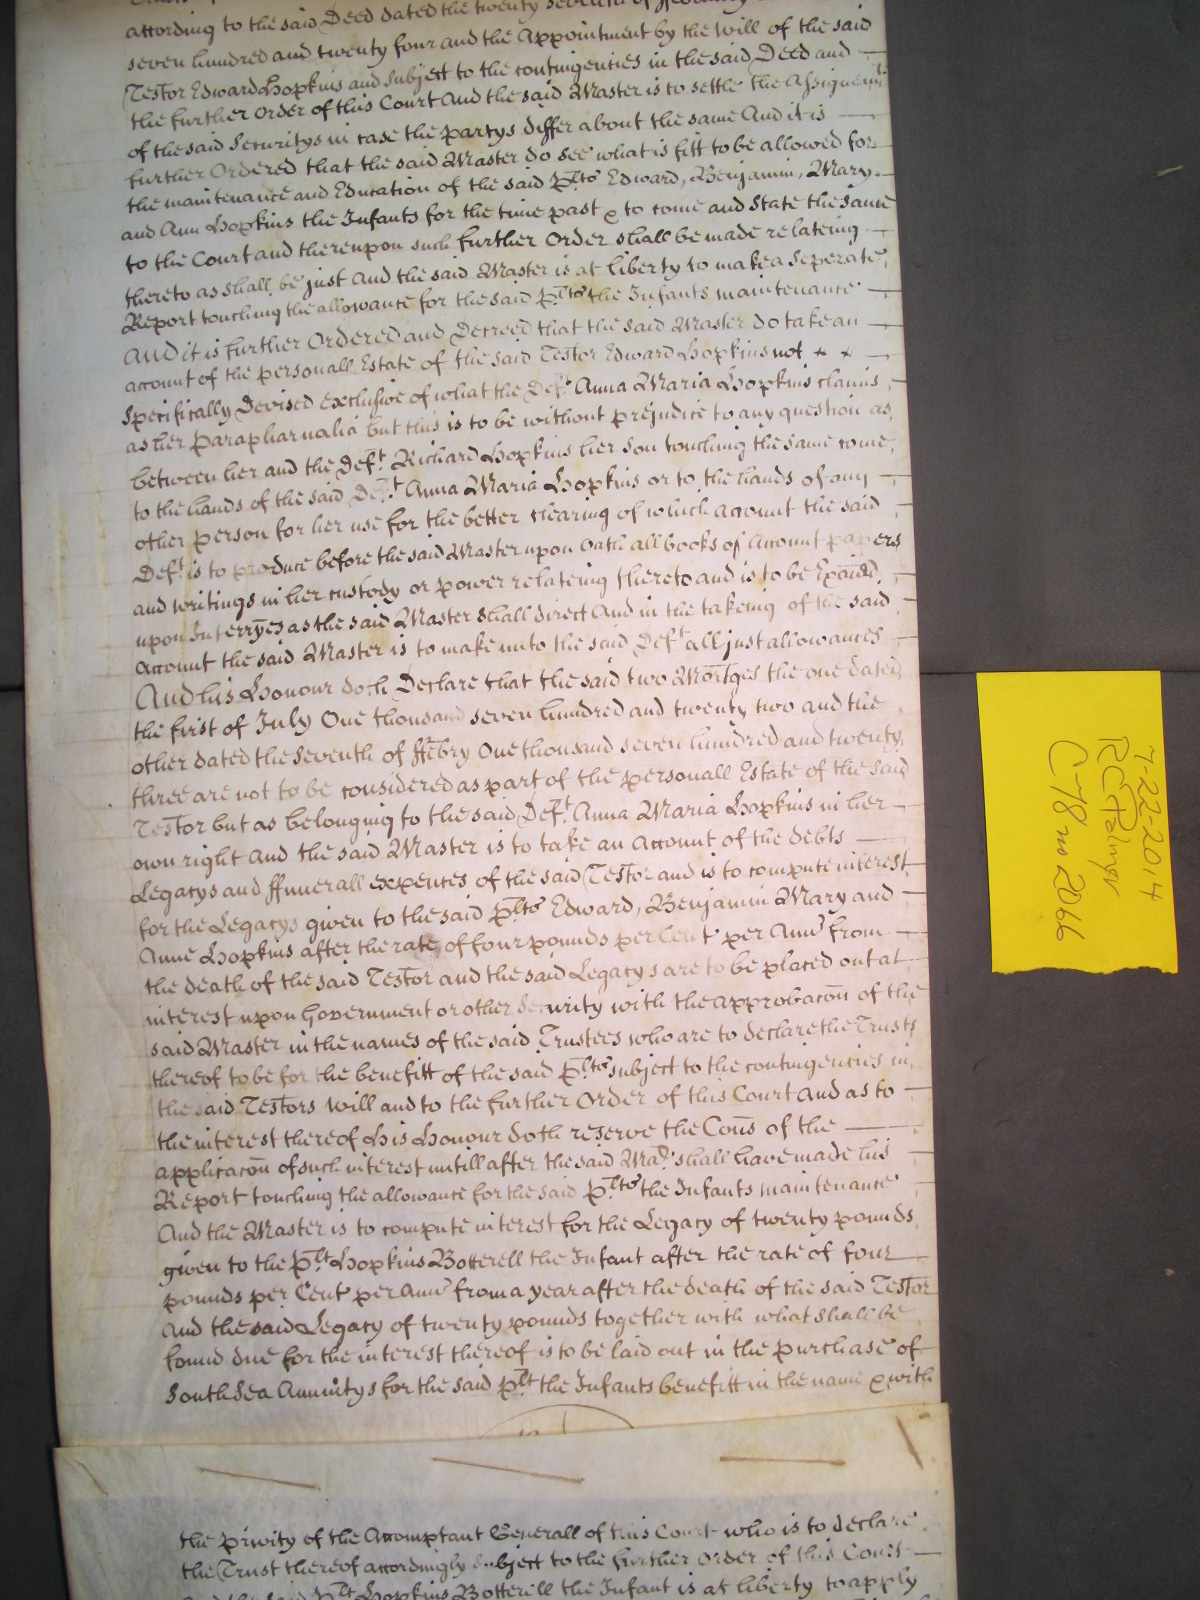 according to the said Deed dated the twenty seventh of
seven hundred and twenty four and the Appointment by the Will of the said
Testor Edward Hopkins and Subject to the contingencies in the said Deed and
the further Order of this Court And the said Master is to settle the Assignemt
of the said Securitys in case the partys differ about the same And it is
further Ordered that the said Master do see what is fitt to be allowed for
the maintenance and Education of the said Plts Edward, Benjamin, Mary
and Ann Hopkins the Infants for the time past & to come and State the same
to the Court and thereupon such further Order shall be made relateing
thereto as shall be just And the said Master is at liberty to make a Seperate
Report touching the allowance for the said Plts the Infants maintenance
And it is further Ordered and Decreed that the said Master do take an
account of the personall Estate of the said Testor Edward Hopkins not x x
Specifically Devised exclusive of what the Deft Anna Maria Hopkins claims
as her parapharnalia but this is to be without prejudice to any question as
between her and the Deft Richard Hopkins her son touching the same come
to the hands of the said Deft Anna Maria Hopkins or to the hands of any
other person for her use for the better clearing of which account the said
Deft is to produce before the said Master upon Oath all books of Account papers
and writings in her custody or power relateing thereto and is to be Exaied
upon Interryes as the said Master shall direct And in the takeing of the said
Account the said Master is to make unto the said Deft all just allowances
And his Honour doth Declare that the said two Mortges the one dated
the first of July One thousand seven hundred and twenty two and the
other dated the Seventh of ffebry One thousand seven hundred and twenty
three are not to be considered as part of the personall Estate of the said
Testor but as belonging to the said Deft Anna Maria Hopkins in her
own right And the said Master is to take an Account of the debts
Legacys and ffunerall expences of the said Testor and is to compute interest
for the Legacys given to the said Plts Edward, Benjamin Mary and
Anne Hopkins after the rate of four pounds per Cent per Ann from
the death of the said Testor and the said Legacys are to be placed out at
interest upon Government or other Security with the approbacon of the
said Master in the names of the said Trustees who are to declare the Trusts
thereof to be for the benefitt of the said Plts subject to the contingencies in
the said Testors Will and to the further Order of this Court And as to
the interest thereof His Honour doth reserve the Cons of the
applicacon of such interest untill after the said Mar shall have made his
Report touching the allowance for the said Plts the Infants maintenance
And the Master is to compute interest for the Legacy of twenty pounds
given to the Plt Hopkins Botterell the Infant after the rate of four
pounds per Cent per Ann from a year after the death of the said Testor
And the said Legacy of twenty pounds together with what shall be
found due for the interest thereof is to be laid out in the purchase of
South Sea Annuitys for the said Plt the Infants benefitt in the name & with
the privity of the Accomptant Generall of this Court who is to declare
the Trust thereof accordingly subject to the further Order of this Court
And the said Plt Hopkins Botterell the Infant is at liberty to apply
7-22-2014
RC Palmer
C78 no 2066